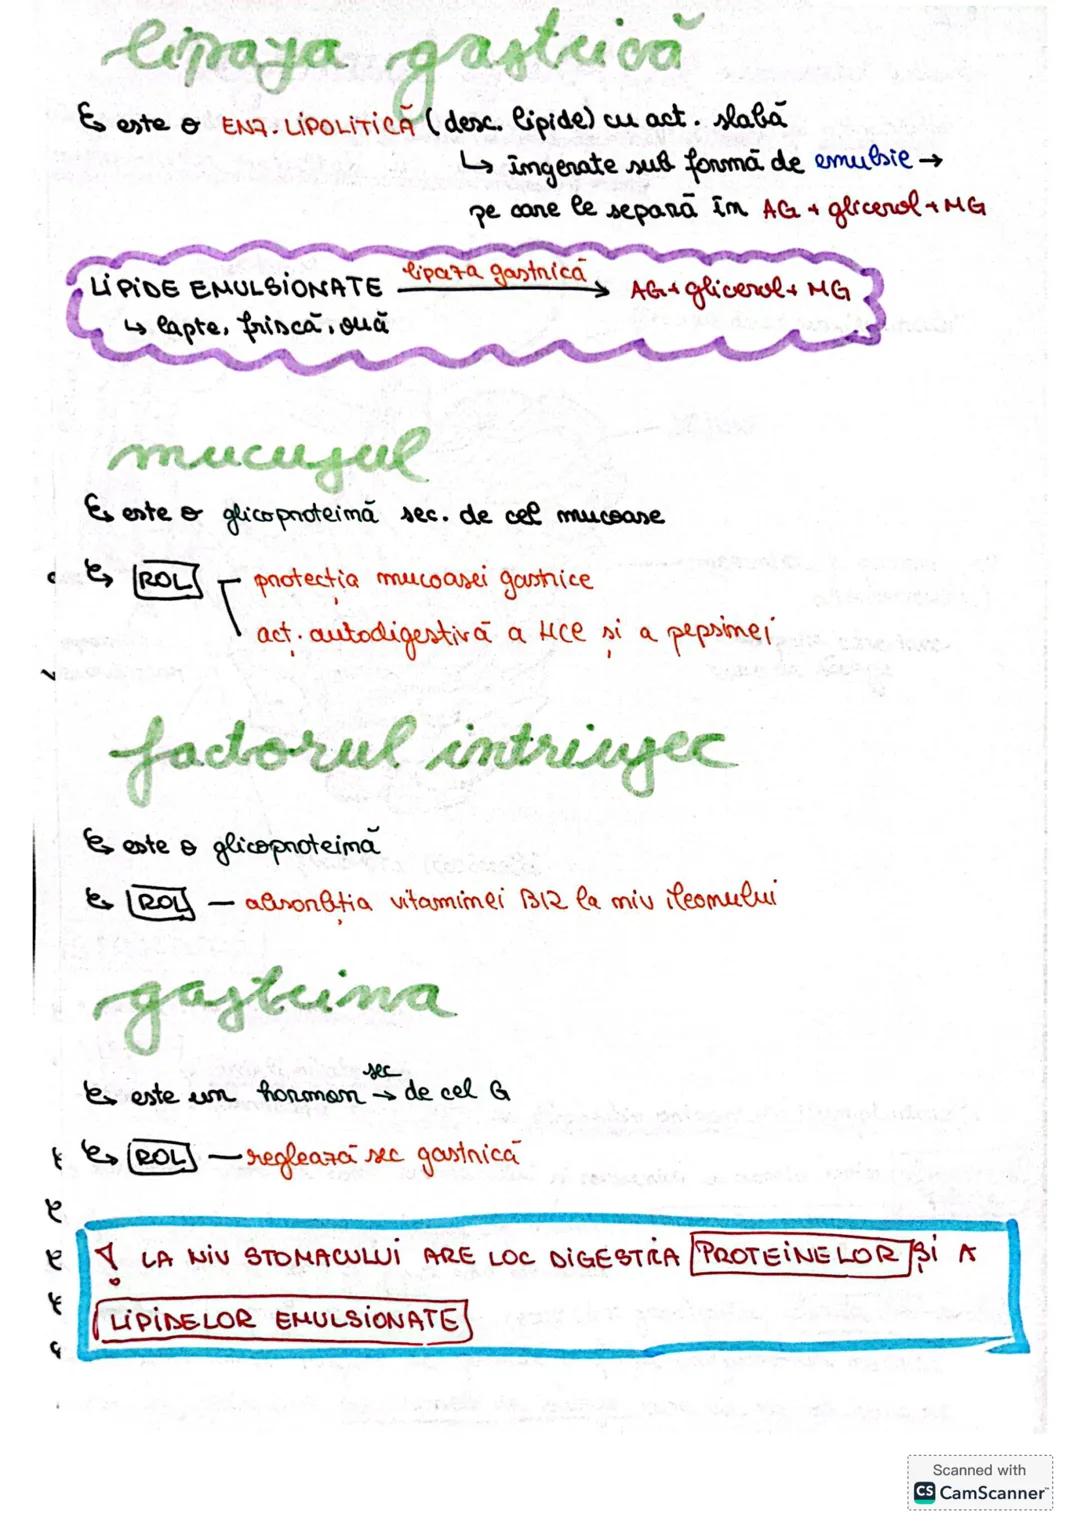 lipaza gastrică
este o ENZ. LIPOLITICĂ (desc. lipide) cu act. slabă
↳ ingerate sub formă de emulsie →
pe care le separă în AG + glicerol + MG
LIPIDE EMULSIONATE lipaza gastrică → AG + glicerol + MG
↳ lapte, frișcă, ouă
mucusul
este o glicoproteină sec. de cel mucoase
ROL protecția mucoasei gastrice
act. autodigestivă a HCl și a pepsinei
factorul intrinsec
este o glicoproteină
ROL — absorbția vitaminei B12 la niv ileonului
gastrina
este un hormon sec → de cel G
ROL — reglează sec gastrică
! LA NIV STOMACULUI ARE LOC DIGESTIA PROTEINELOR ȘI A
LIPIDELOR EMULSIONATE
Scanned with
CS CamScanner